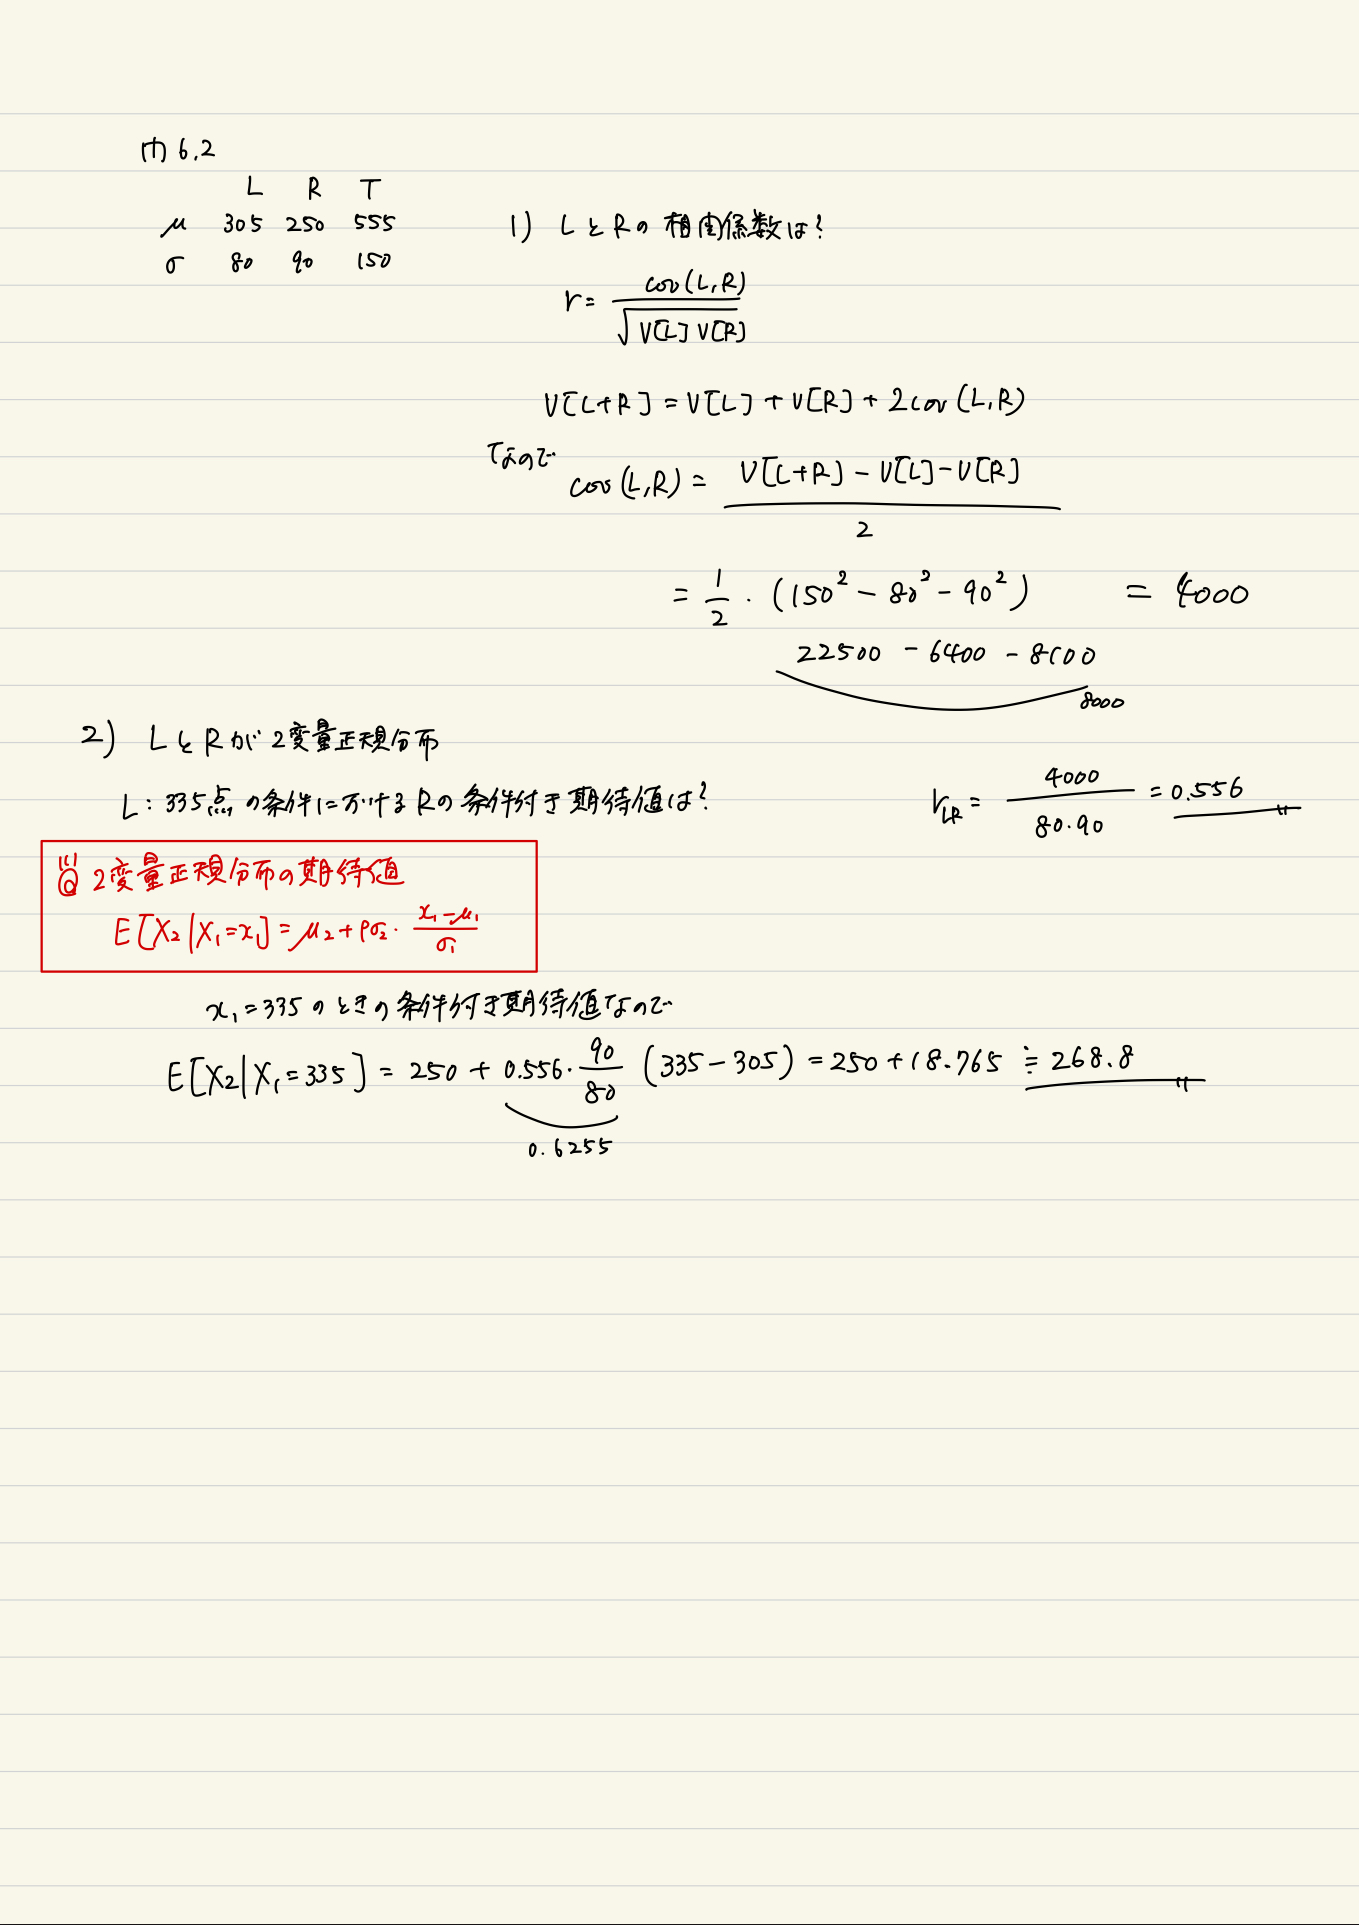 問 6.2
L R T
μ 305 250 555
σ 80 90 150
1) LとRの相関係数は?
r = cov(L,R) / √V[L]V[R]
V[L+R] = V[L] + V[R] + 2cov(L,R)
なので
cov(L,R) = V[L+R] - V[L] - V[R] / 2
= 1/2 · (150² - 80² - 90²) = 4000
22500 - 6400 - 8100
8000
r_LR = 4000 / 80·90 = 0.556
2) LとRが2変量正規分布
L: 335点の条件における Rの条件付き期待値は?
2変量正規分布の期待値
E[X₂|X₁=x₁] = μ₂ + ρσ₂ · x₁-μ₁ / σ₁
x₁=335 のときの条件付き期待値なので
E[X₂|X₁=335] = 250 + 0.556 · 90/80 (335-305) = 250 + 18.765 ≒ 268.8
0.6255